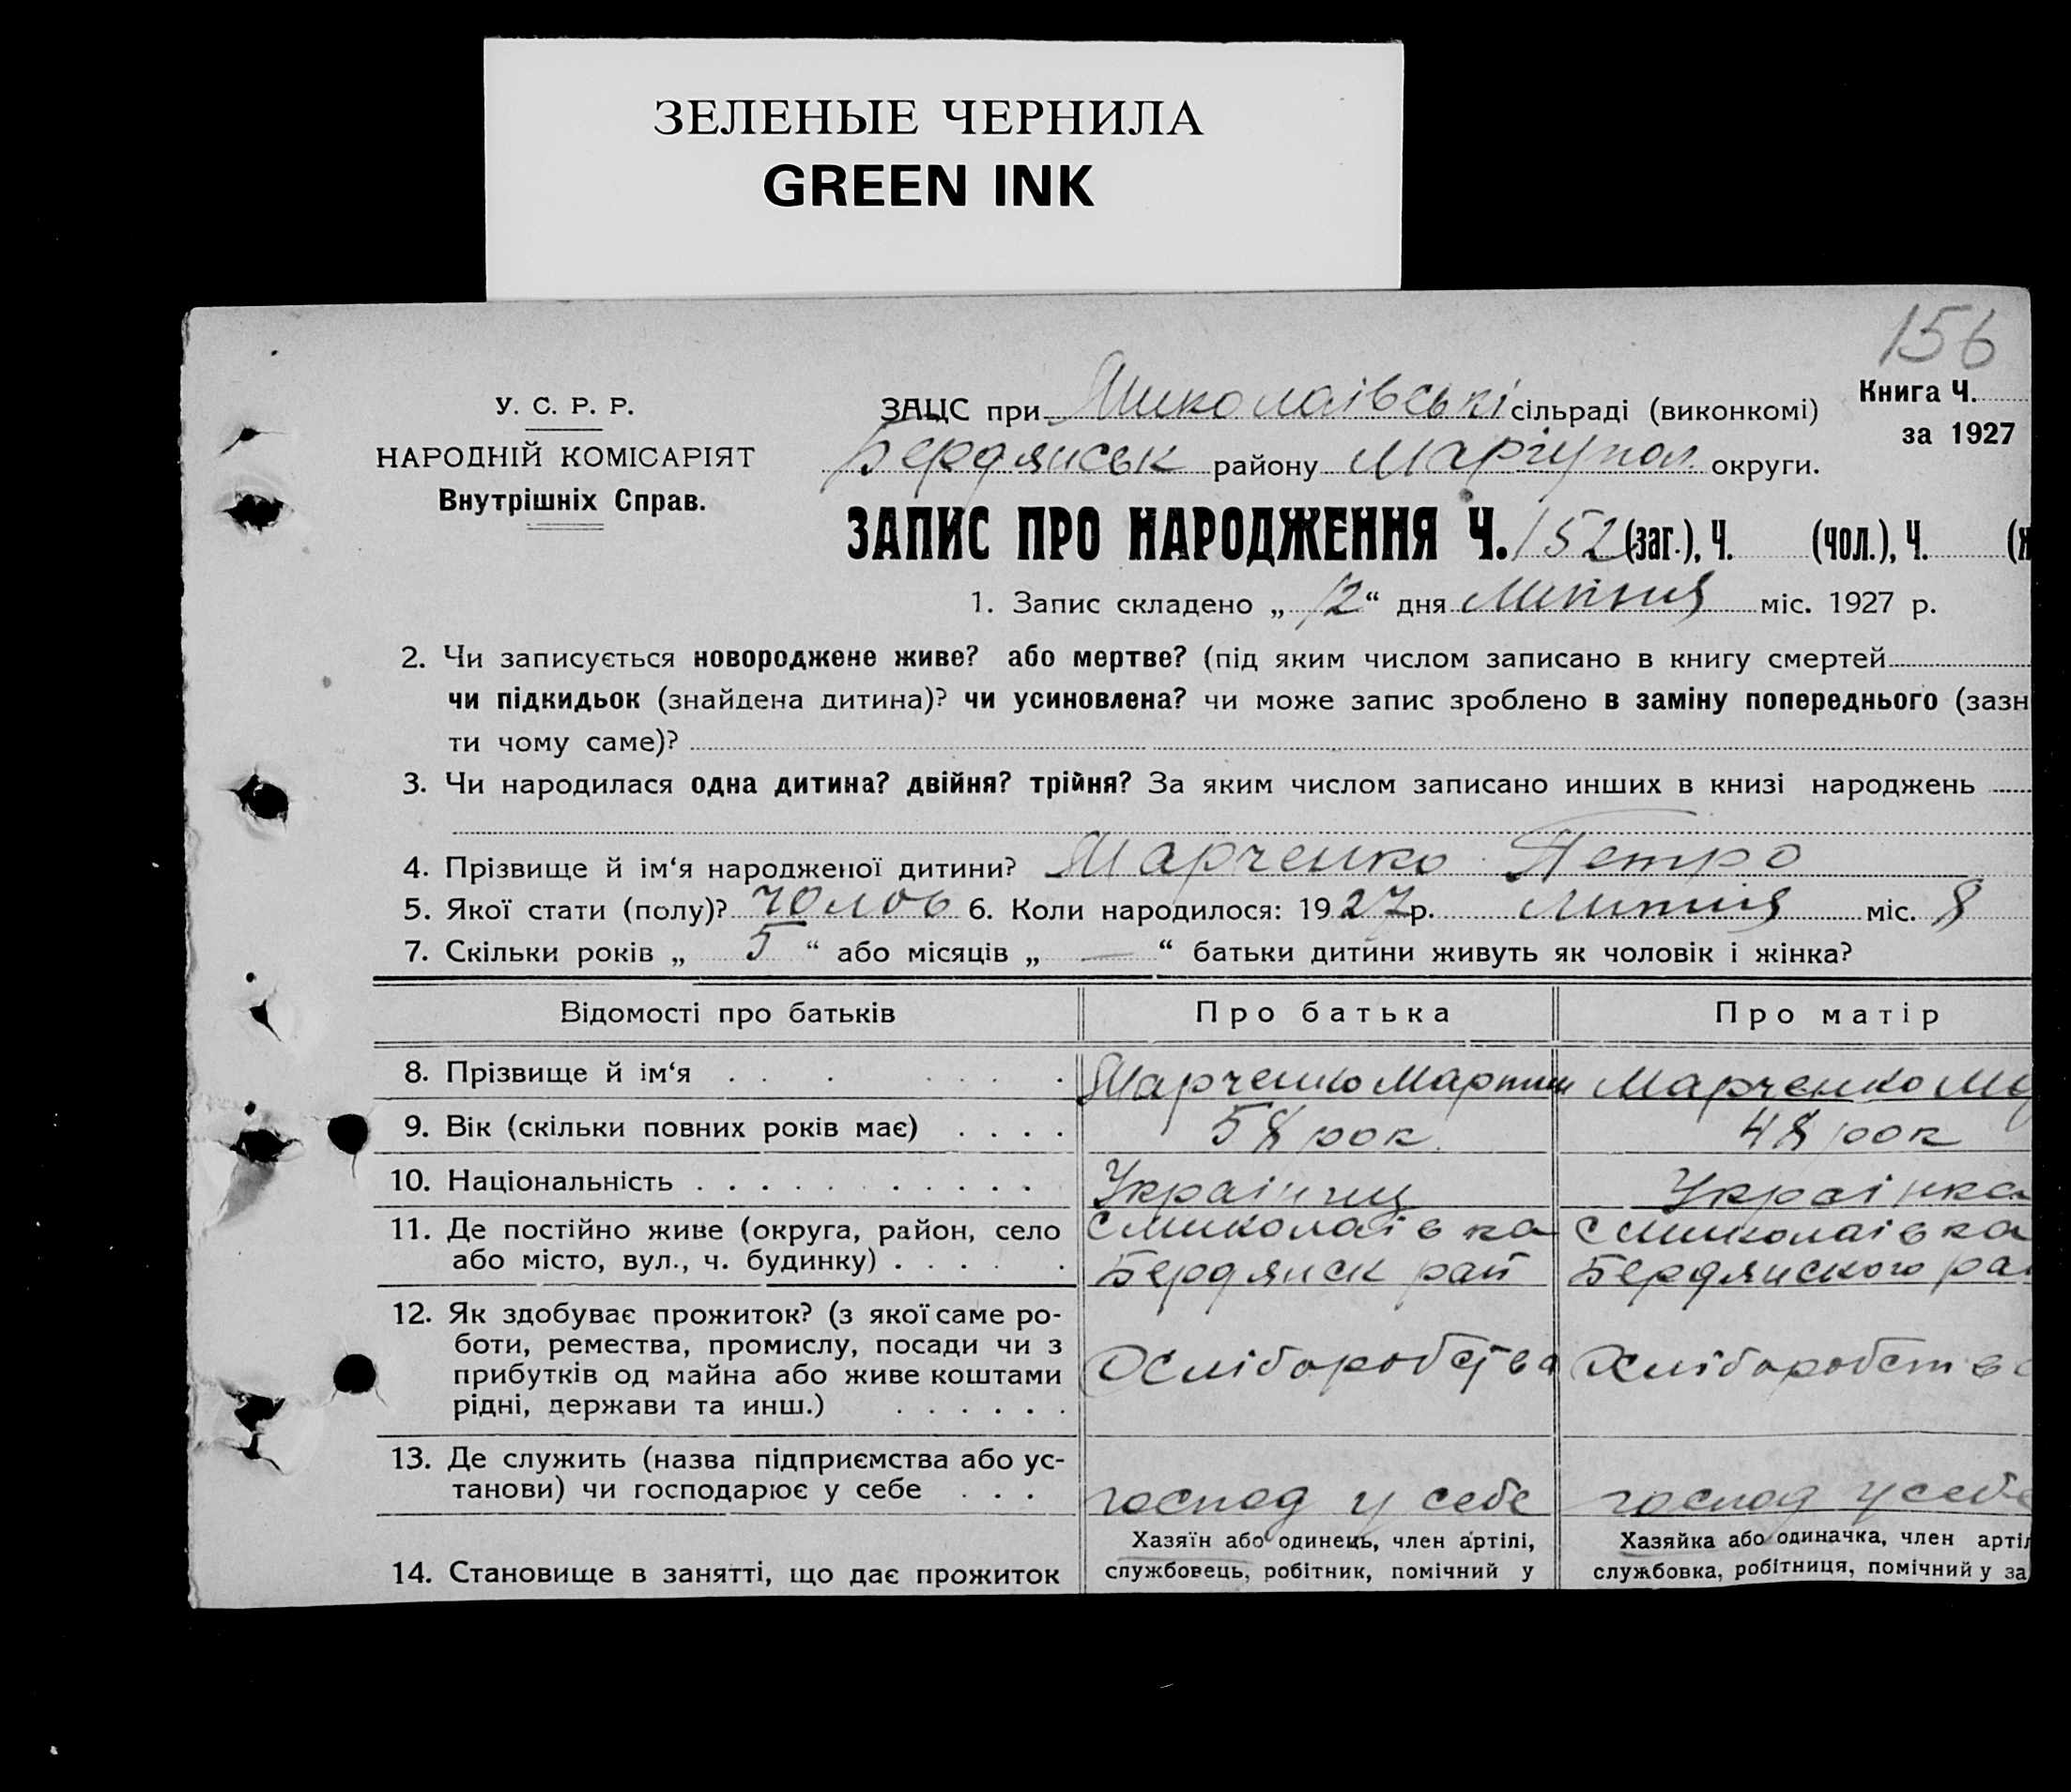 ЗЕЛЕНЫЕ ЧЕРНИЛА
GREEN INK
156
У. С. Р. Р.
НАРОДНІЙ КОМІСАРІЯТ
Внутрішніх Справ.
ЗАЦС при Миколаівські сільраді (виконкомі)
Книга Ч.
за 1927
Бердянськ району Маріупол. округи.
ЗАПИС ПРО НАРОДЖЕННЯ Ч. 152 (заг.), Ч. (чол.), Ч. (ж
1. Запис складено „ 12 “ дня Липня міс. 1927 р.
2. Чи записується новороджене живе? або мертве? (під яким числом записано в книгу смертей
чи підкидьок (знайдена дитина)? чи усиновлена? чи може запис зроблено в заміну попереднього (зазн
ти чому саме)?
3. Чи народилася одна дитина? двійня? трійня? За яким числом записано инших в книзі народжень
4. Прізвище й ім‘я народженої дитини? Марченко Петро
5. Якої стати (полу)? Чолов 6. Коли народилося: 1927 р. Липня міс. 8
7. Скільки років „ 5 “ або місяців „ — “ батьки дитини живуть як чоловік і жінка?
Відомості про батьків Про батька Про матір
8. Прізвище й ім‘я Марченко Мартин Марченко
9. Вік (скільки повних років має) 58 рок. 48 рок
10. Національність Украіниц Украінка
11. Де постійно живе (округа, район, село с Миколаівка с Миколаівка
або місто, вул., ч. будинку) Бердянск рай Бердянского ра
12. Як здобуває прожиток? (з якої саме ро-
боти, ремества, промислу, посади чи з
прибутків од майна або живе коштами Хліборобства Хліборобства
рідні, держави та инш.)
13. Де служить (назва підприємства або ус-
танови) чи господарює у себе господ у себе господ у себе
Хазяїн або одинець, член артілі, Хазяйка або одиначка, член артіл
14. Становище в занятті, що дає прожиток службовець, робітник, помічний у службовка, робітниця, помічний у за